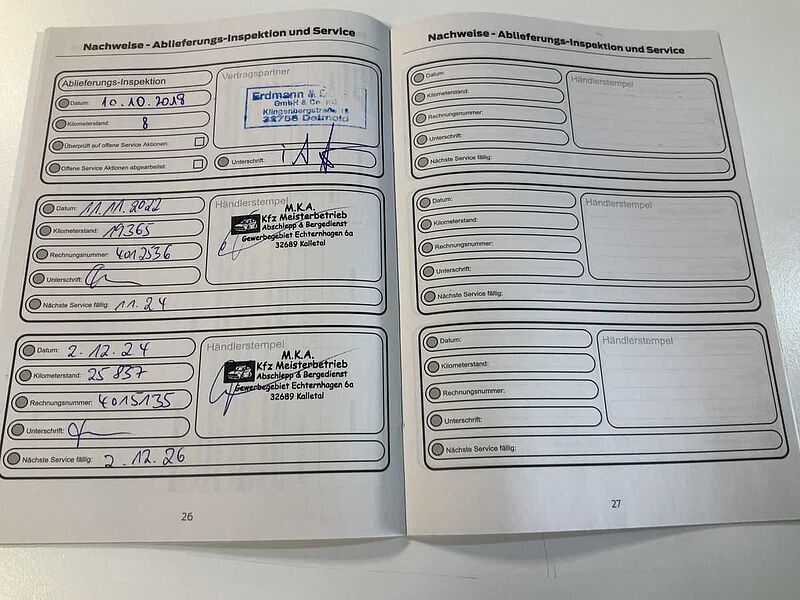 Nachweise - Ablieferungs-Inspektion und Service
Ablieferungs-Inspektion
Datum: 10.10.2018
Kilometerstand: 8
Überprüft auf offene Service Aktionen:
Offene Service Aktionen abgearbeitet:
Vertragspartner
Erdmann &
GmbH & Co.
Klingenbergstraße
32758 Detmold
Unterschrift:
Datum: 11.11.2022
Kilometerstand: 19365
Rechnungsnummer: 4012536
Unterschrift:
Nächste Service fällig: 11.24
Händlerstempel
M.K.A.
Kfz Meisterbetrieb
Abschlepp & Bergedienst
Gewerbegebiet Echternhagen 6a
32689 Kalletal
Datum: 2.12.24
Kilometerstand: 25837
Rechnungsnummer: 4015135
Unterschrift:
Nächste Service fällig: 2.12.26
Händlerstempel
M.K.A.
Kfz Meisterbetrieb
Abschlepp & Bergedienst
Gewerbegebiet Echternhagen 6a
32689 Kalletal
26
Nachweise - Ablieferungs-Inspektion und Service
Datum:
Kilometerstand:
Rechnungsnummer:
Unterschrift:
Nächste Service fällig:
Händlerstempel
Datum:
Kilometerstand:
Rechnungsnummer:
Unterschrift:
Nächste Service fällig:
Händlerstempel
Datum:
Kilometerstand:
Rechnungsnummer:
Unterschrift:
Nächste Service fällig:
Händlerstempel
27